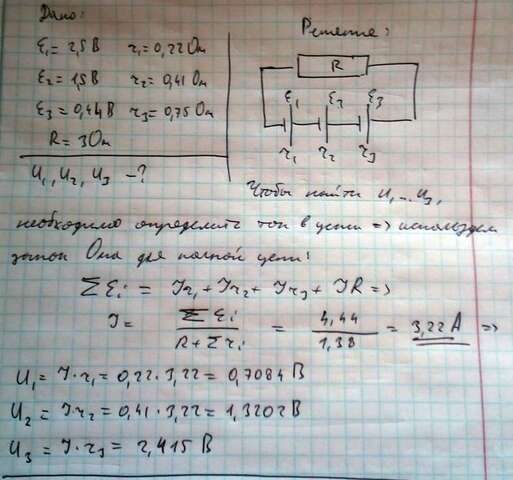 Дано: Решение:
ε₁ = 2,5 В r₁ = 0,22 Ом
ε₂ = 1,5 В r₂ = 0,41 Ом
ε₃ = 0,44 В r₃ = 0,75 Ом
R = 3 Ом
U₁, U₂, U₃ - ?
R
ε₁ ε₂ ε₃
r₁ r₂ r₃
Чтобы найти U₁...U₃,
необходимо определить ток в цепи => используем
закон Ома для полной цепи:
Σεᵢ = Ir₁ + Ir₂ + Ir₃ + IR =>
I = Σεᵢ / (R + Σrᵢ) = 4,44 / 1,38 = 3,22 A =>
U₁ = I · r₁ = 0,22 · 3,22 = 0,7084 В
U₂ = I · r₂ = 0,41 · 3,22 = 1,3202 В
U₃ = I · r₃ = 2,415 В